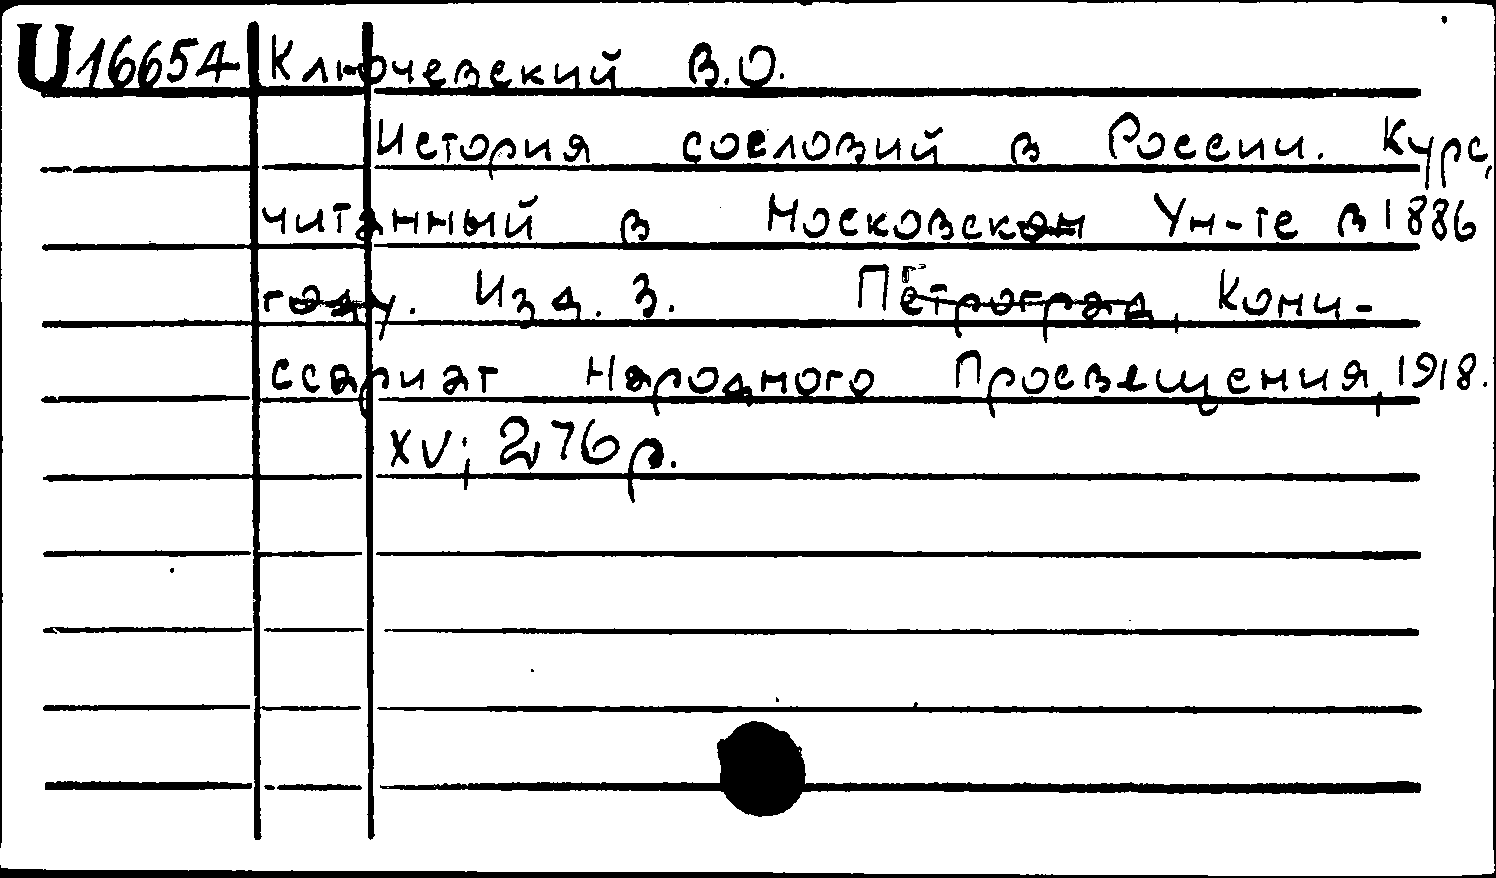 U16654 Ключевский В.О.
История сословий в России. Курс,
читанный в Московском Ун-те в 1886
году. Изд. 3. Петроград, Коми-
ссариат Народного Просвещения, 1918.
XV; 276 р.